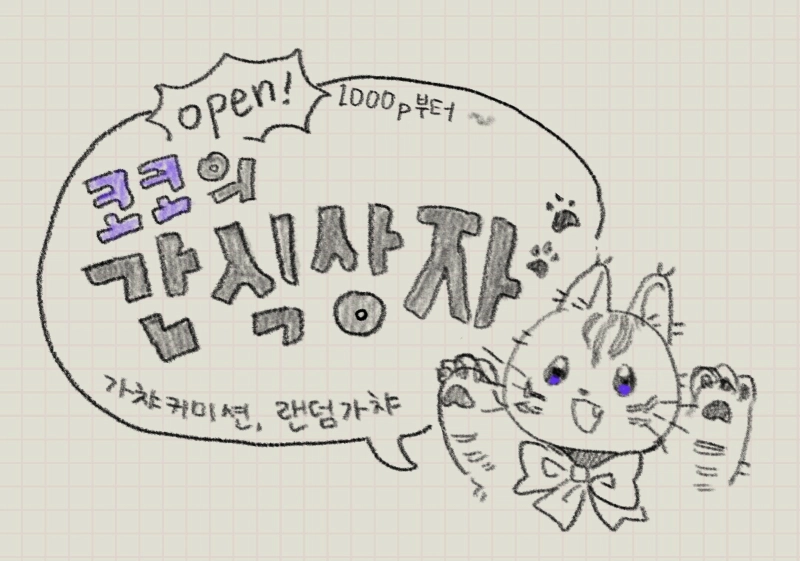 open!
1000p부터 ~
코코의
간식상자
가챠커미션, 랜덤가챠